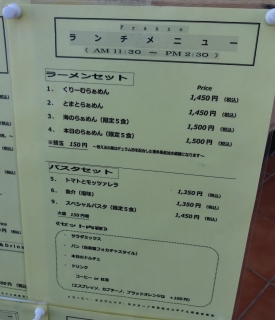 Pranzo
ランチメニュー
( AM 11:30 ー PM 2:30 )
ラーメンセット
Price
1. くりーむらぁめん 1,450円 (税込)
2. とまとらぁめん 1,450円 (税込)
3. 海のらぁめん (限定5食) 1,500円 (税込)
4. 本日のらぁめん (限定5食) 1,500円 (税込)
※替玉 150円
パスタセット
5. トマトとモッツァレラ 1,350円 (税込)
6. 1,350円 (税込)
9. スペシャルパスタ (限定5食) 1,450円 (税込)
大盛 150円増
・ サラダミックス
・ パン (自家製フォカチャスタイル)
・ 本日のドルチェ
・ ドリンク
コーヒー or 紅茶
(エスプレッソ、カプチーノ、ブラッドオレンジは +100円)